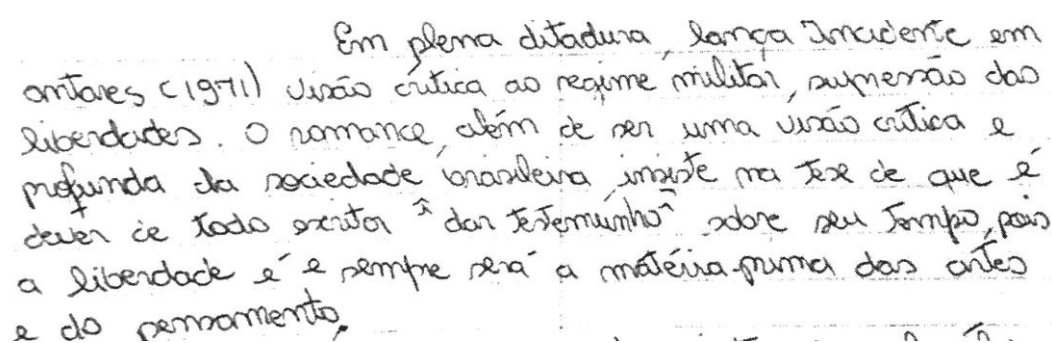 Em plena ditadura, lança Incidente em
antares (1971) visão crítica ao regime militar, supressão das
liberdades. O romance, além de ser uma visão crítica e
profunda da sociedade brasileira, insiste na tese de que é
dever de todo escritor "dar testemunho" sobre seu tempo, pois
a liberdade é e sempre será a matéria-prima das artes
e do pensamento.